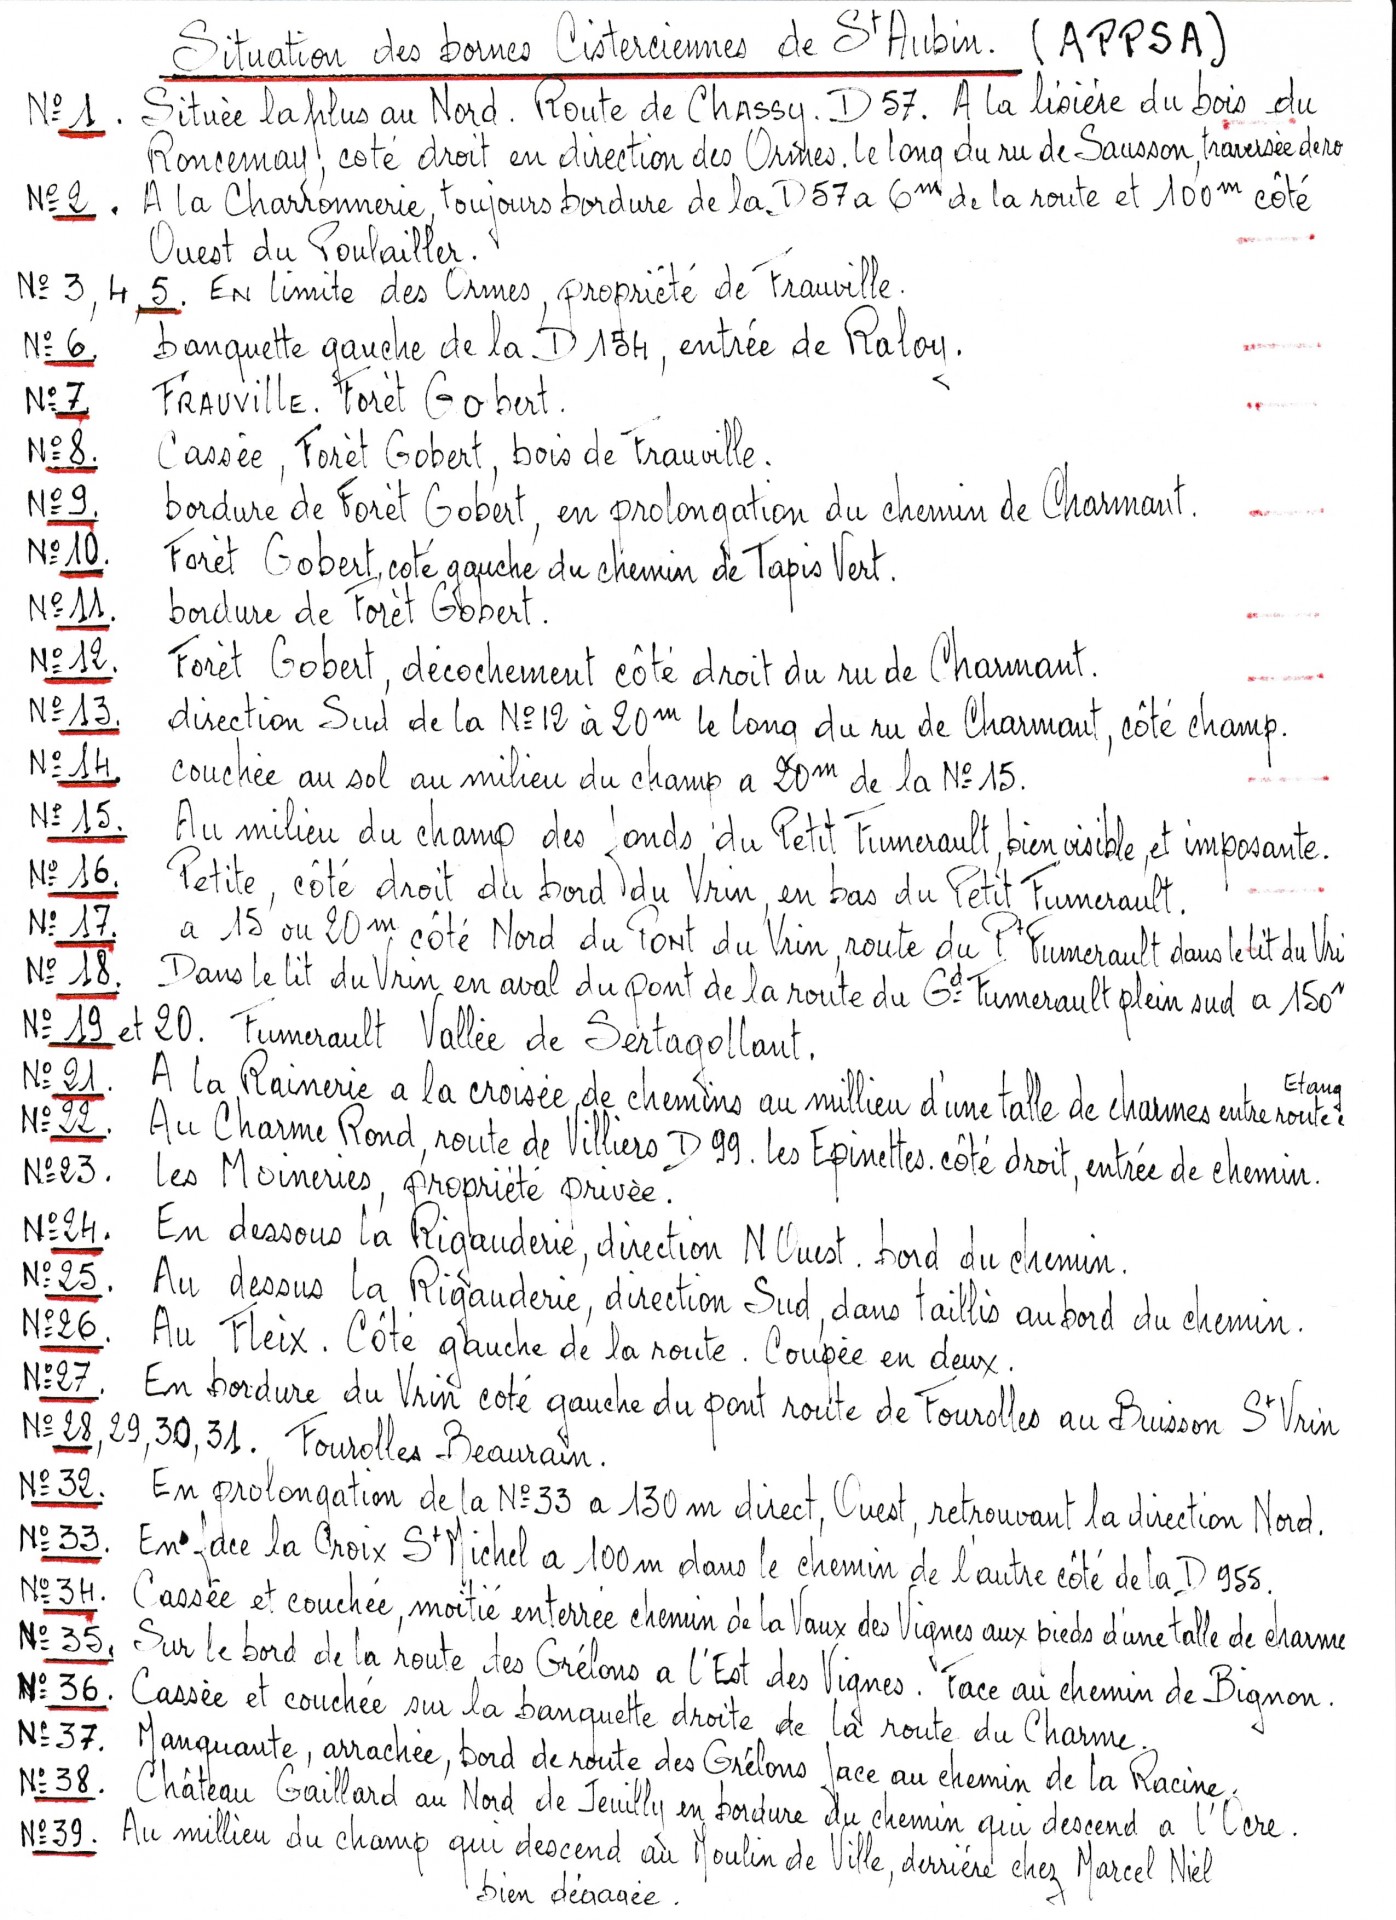 Situation des bornes Cisterciennes de St Aubin. (APPSA)
Nº 1. Située la plus au Nord. Route de CHASSY. D 57. A la lisière du bois du
Roncemay, coté droit en direction des Ormes. le long du ru de Sausson, traversée de ro
Nº 2. A la Charronnerie, toujours bordure de la D57 a 6m de la route et 100m côté
Ouest du Poulailler.
Nº 3, 4, 5. EN limite des Ormes, propriété de Frauville.
Nº 6. banquette gauche de la D 154, entrée de Raloy.
Nº 7 FRAUVILLE. Forèt Gobert.
Nº 8. Cassée, Forèt Gobert, bois de Frauville.
Nº 9. bordure de Forèt Gobert, en prolongation du chemin de Charmant.
Nº 10. Forèt Gobert, coté gauche du chemin de Tapis Vert.
Nº 11. bordure de Forèt Gobert.
Nº 12. Forèt Gobert, décochement côté droit du ru de Charmant.
Nº 13. direction Sud de la Nº 12 à 20m le long du ru de Charmant, côté champ.
Nº 14 couchée au sol au milieu du champ a 20m de la Nº 15.
Nº 15. Au milieu du champ des fonds du Petit Fumerault, bien visible, et imposante.
Nº 16. Petite, côté droit du bord du Vrin, en bas du Petit Fumerault.
Nº 17. a 15 ou 20m côté Nord du PONT du Vrin, route du Pt Fumerault dans le lit du Vri
Nº 18. Dans le lit du Vrin, en aval du pont de la route du Gd Fumerault plein sud a 150m
Nº 19 et 20. Fumerault Vallée de Sertagollant.
Nº 21. A la Rainerie a la croisée de chemins au millieu d'une talle de charmes entre route e
Etang
Nº 22. Au Charme Rond, route de Villiers D 99. les Epinettes. côté droit, entrée de chemin.
Nº 23. les Moineries, propriété privée.
Nº 24. En dessous la Rigauderie, direction N Ouest. bord du chemin.
Nº 25. Au dessus la Rigauderie, direction Sud, dans taillis au bord du chemin.
Nº 26. Au Fleix. Côté gauche de la route. Coupée en deux.
Nº 27. En bordure du Vrin coté gauche du pont route de Fourolles au Buisson St Vrin
Nº 28, 29, 30, 31. Fourolles Beaurain.
Nº 32. En prolongation de la Nº 33 a 130 m direct, Ouest, retrouvant la direction Nord.
Nº 33. En face la Croix St Michel a 100m dans le chemin de l'autre côté de la D 955.
Nº 34. Cassée et couchée, moitié enterrée chemin de la Vaux des Vignes aux pieds d'une talle de charme
Nº 35. Sur le bord de la route des Grélons a l'Est des Vignes. Face au chemin de Bignon.
Nº 36. Cassée et couchée sur la banquette droite de la route du Charme.
Nº 37. Manquante, arrachée, bord de route des Grélons face au chemin de la Racine.
Nº 38. Château Gaillard au Nord de Jeuilly en bordure du chemin qui descend a l'Ocre.
Nº 39. Au millieu du champ qui descend au Moulin de Ville, derrière chez Marcel Niel
bien dégagée.